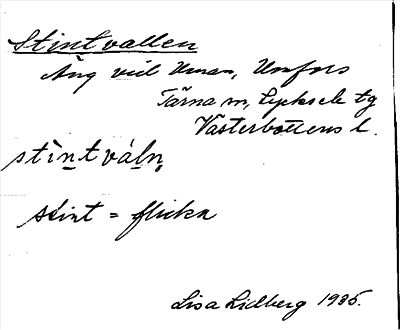 Stintvallen
Äng vid Uman, Umfors
Tärna sn, Lycksele tg
Västerbottens l.
stìntváln̥
stint = flicka
Lisa Lidberg 1985.